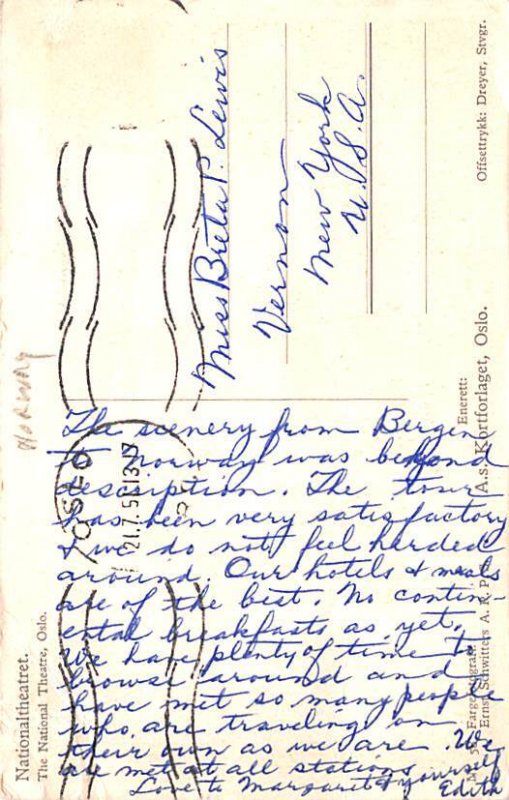 Nationaltheatret.
The National Theatre, Oslo.
NORWAY
OSLO
21.7.5 13-17
The scenery from Bergen
to norway was beyond
description. The tour
has been very satisfactory
& we do not feel harded
around. Our hotels & meals
are of the best. No contin-
ental breakfasts as yet.
We have plenty of time to
browse around and
have met so many people
who are traveling on
their own as we are. We
are met at all stations
Love to Margaret & yourself
Edith
Miss Breta P. Lewis
Vernon
New York
U.S.A.
Enerett:
A.s. Kortforlaget, Oslo.
Ernst Schwitters A. R. P.
Offsettrykk: Dreyer, Stvgr.